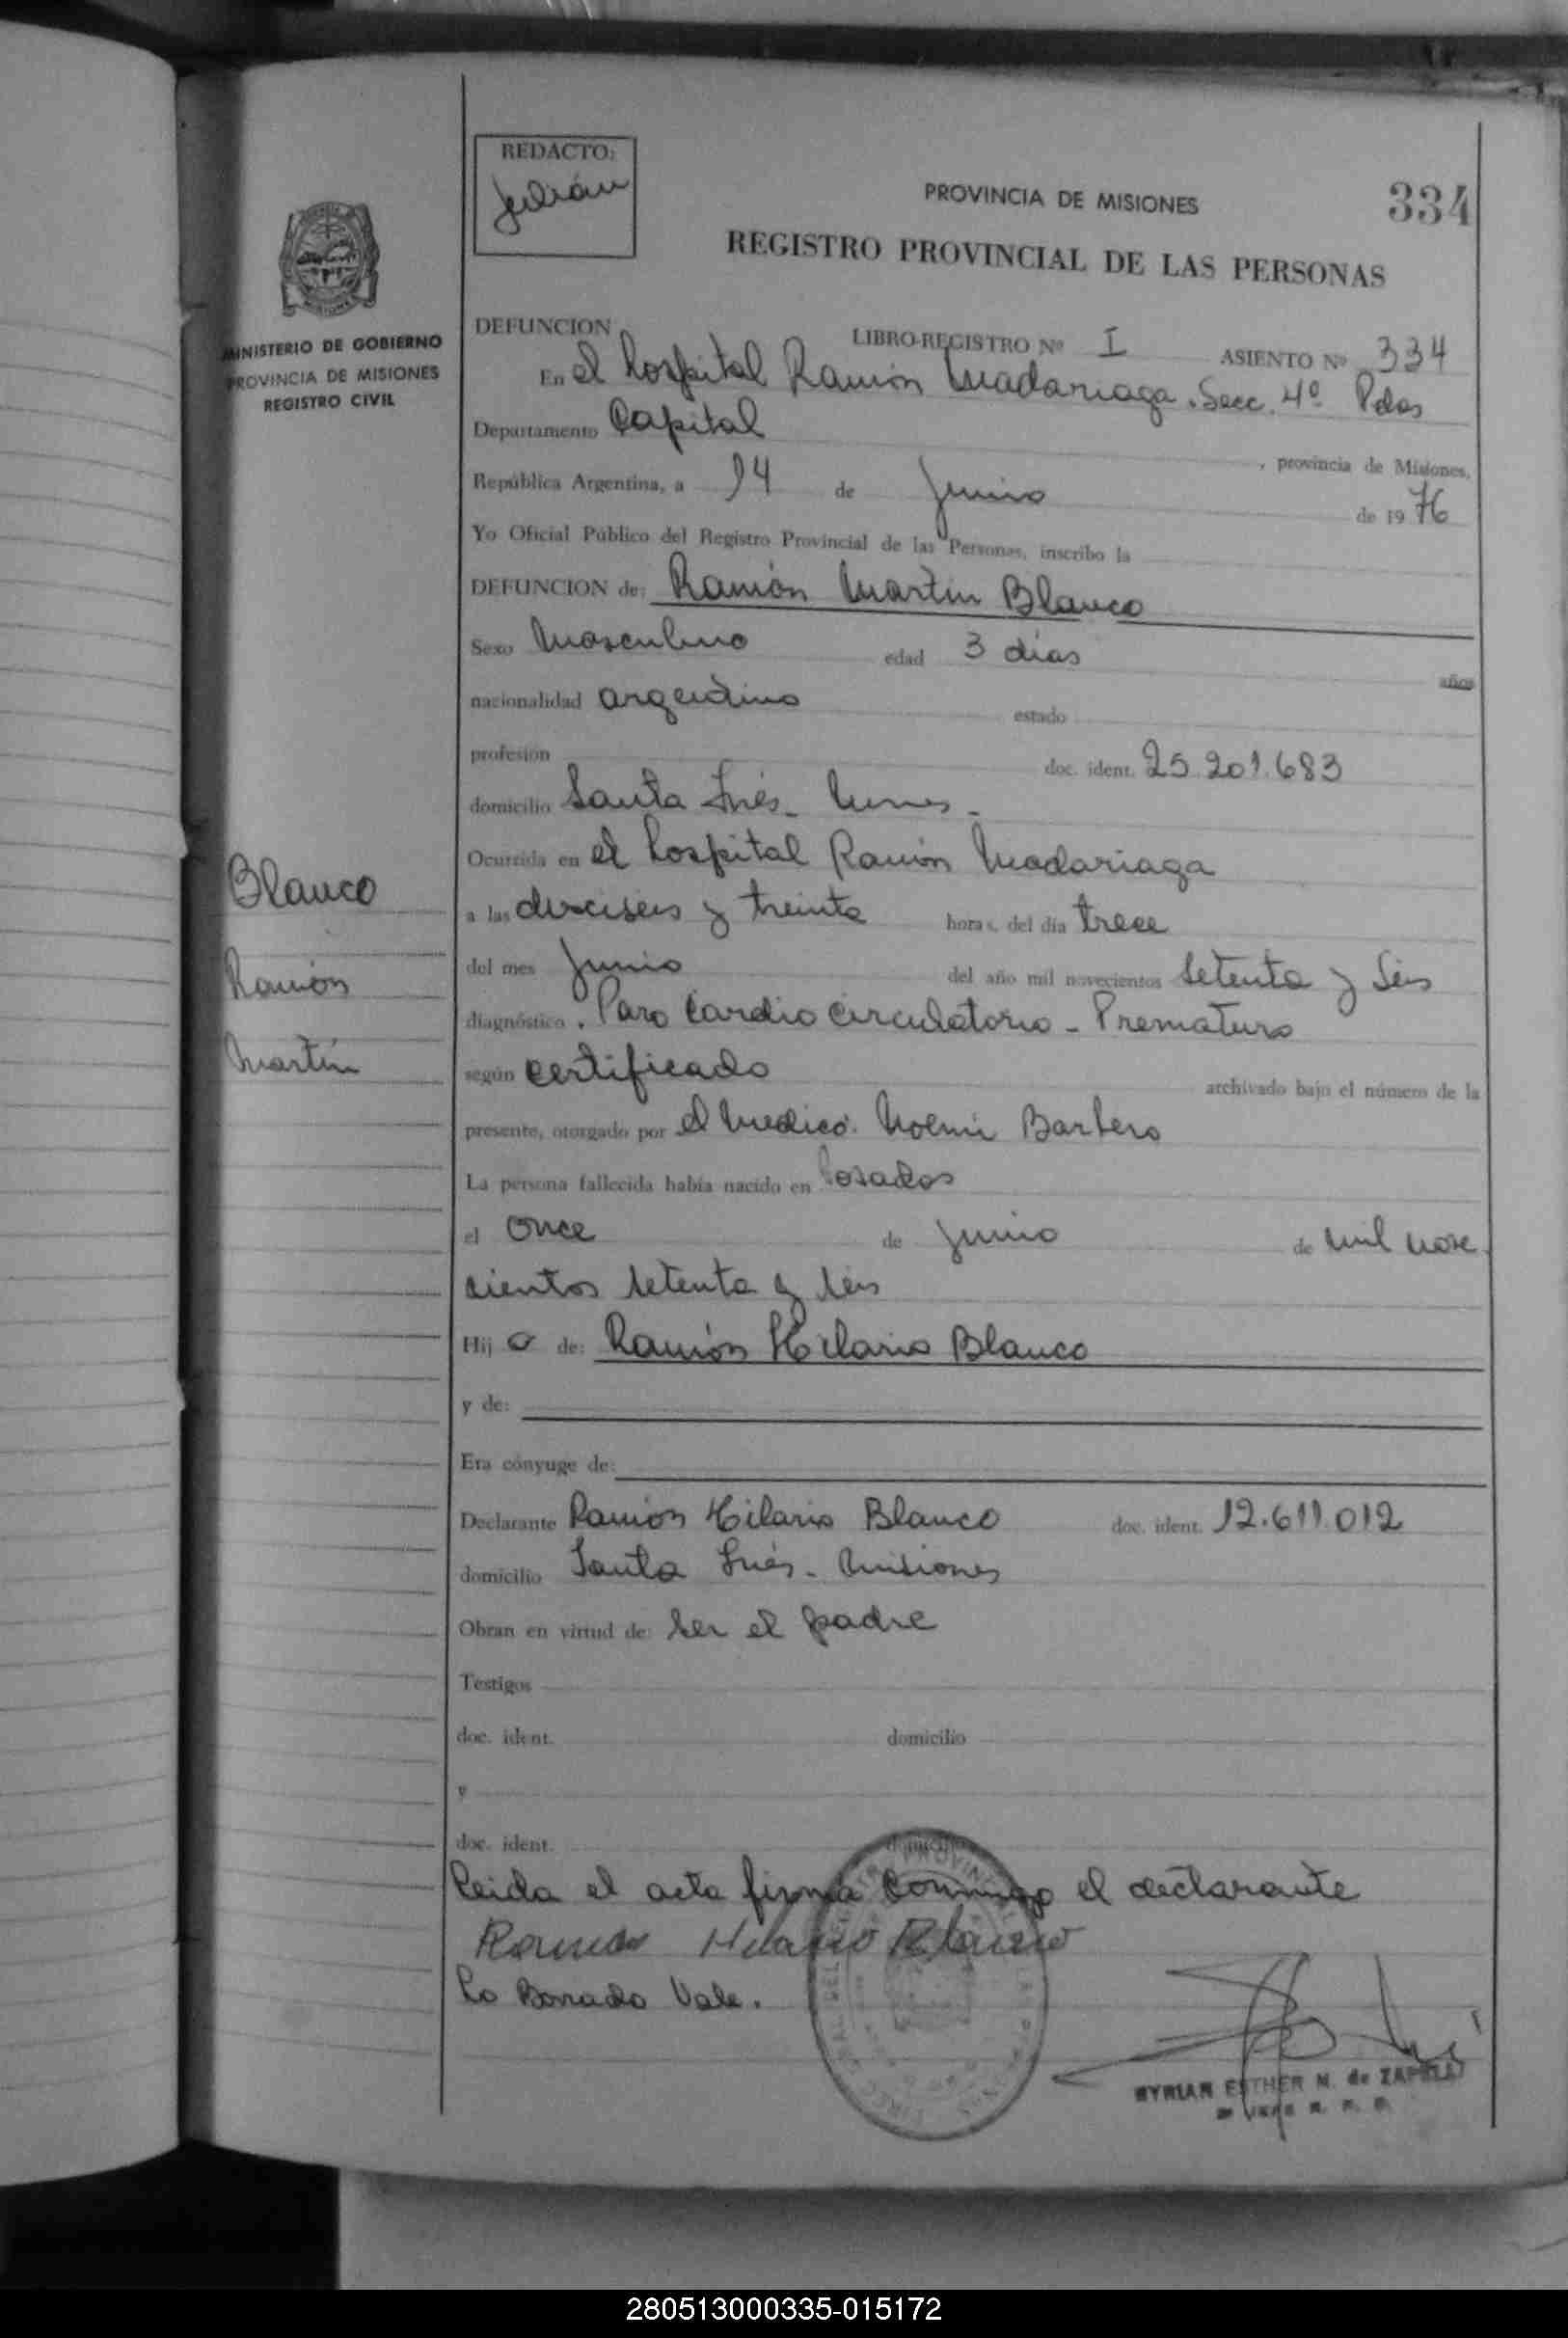 REDACTO:
Julián
PROVINCIA DE MISIONES
334
REGISTRO PROVINCIAL DE LAS PERSONAS
MINISTERIO DE GOBIERNO
PROVINCIA DE MISIONES
REGISTRO CIVIL
DEFUNCION LIBRO-REGISTRO Nº I ASIENTO Nº 334
En el hospital Ramón Madariaga. Secc. 4º Pdas
Departamento Capital , provincia de Misiones,
República Argentina, a 14 de Junio de 1976
Yo Oficial Público del Registro Provincial de las Personas, inscribo la
DEFUNCION de: Ramón Martín Blanco
Sexo Masculino edad 3 días años
nacionalidad argentino estado
profesión doc. ident. 25.201.683
domicilio Santa Inés-
Ocurrida en el hospital Ramón Madariaga
a las dieciseis y treinta horas, del día trece
del mes Junio del año mil novecientos setenta y seis
diagnóstico. Paro Cardio Circulatorio - Prematuro
según certificado archivado bajo el número de la
presente, otorgado por el Medico. Noemi Barbero
La persona fallecida había nacido en Posadas
el once de Junio de mil nove
cientos setenta y seis
Hijo de: Ramón Hilario Blanco
y de:
Era cónyuge de:
Declarante Ramón Hilario Blanco doc. ident. 12.611.012
domicilio Santa Inés - Misiones
Obran en virtud de ser el padre
Testigos
doc. ident. domicilio
y
doc. ident. domicilio
Leida el acta firma conmigo el declarante
Ramon Hilario Blanco
Lo Borrado Vale.
MYRIAN ESTHER M. de
Blanco
Ramón
Martín
280513000335-015172